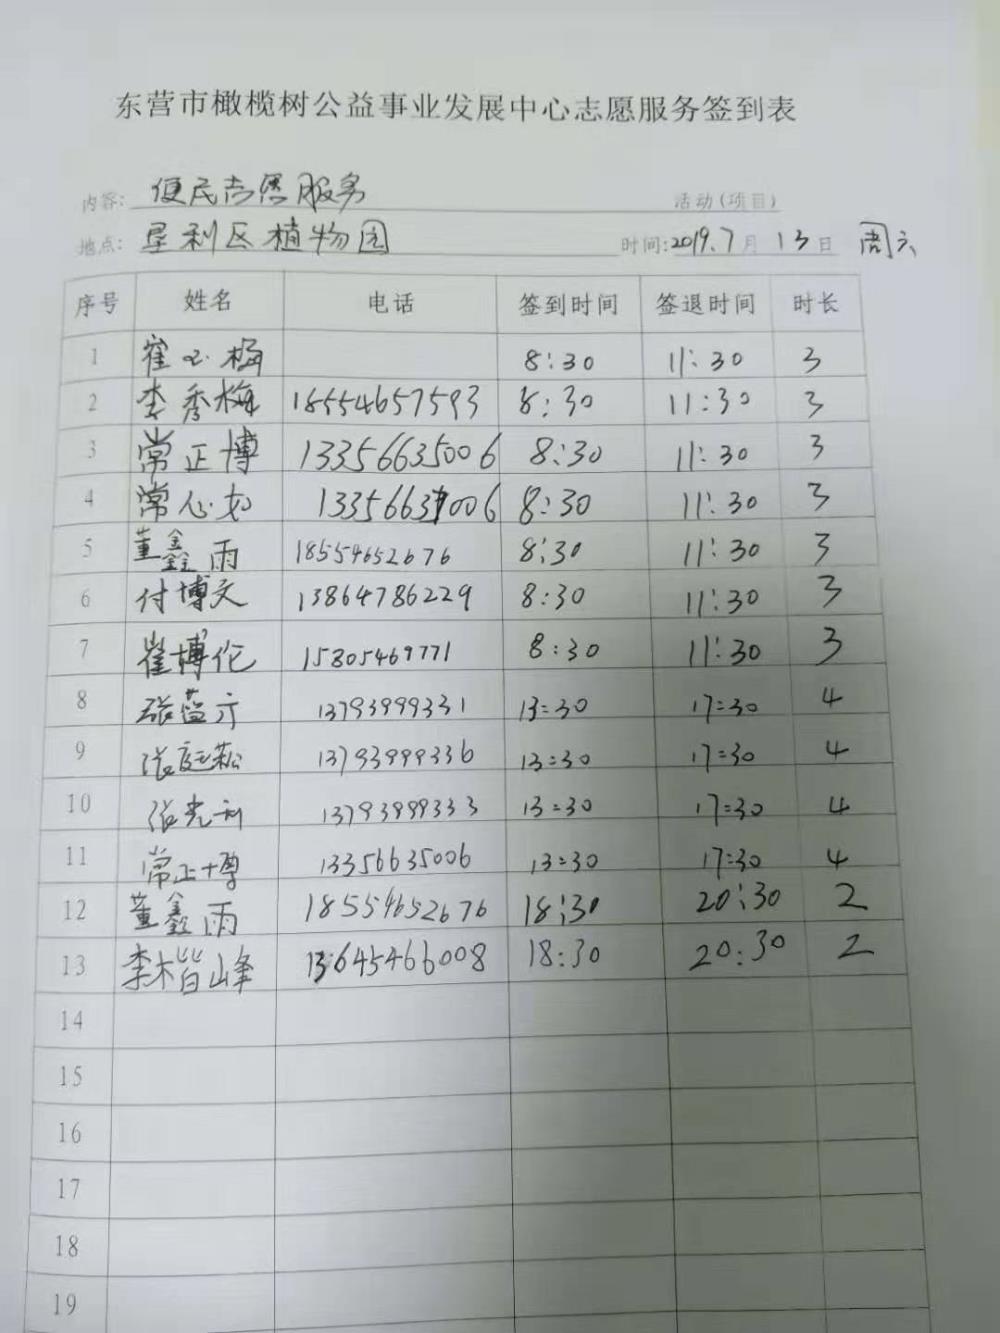 东营市橄榄树公益事业发展中心志愿服务签到表
内容: 便民志愿服务 活动(项目)
地点: 垦利区植物园 时间:2019.7月13日 周六
序号 姓名 电话 签到时间 签退时间 时长
1 崔心梅 8:30 11:30 3
2 李秀梅 18554657593 8:30 11:30 3
3 常正博 13356635006 8:30 11:30 3
4 常心如 13356635006 8:30 11:30 3
5 董鑫雨 18554652676 8:30 11:30 3
6 付博文 13864786229 8:30 11:30 3
7 崔博伦 15805469771 8:30 11:30 3
8 张蓝亓 13793999331 13:30 17:30 4
9 张庭菘 13793999336 13:30 17:30 4
10 张光利 13793999333 13:30 17:30 4
11 常正博 13356635006 13:30 17:30 4
12 董鑫雨 18554652676 18:30 20:30 2
13 李楷峰 13645466008 18:30 20:30 2
14
15
16
17
18
19